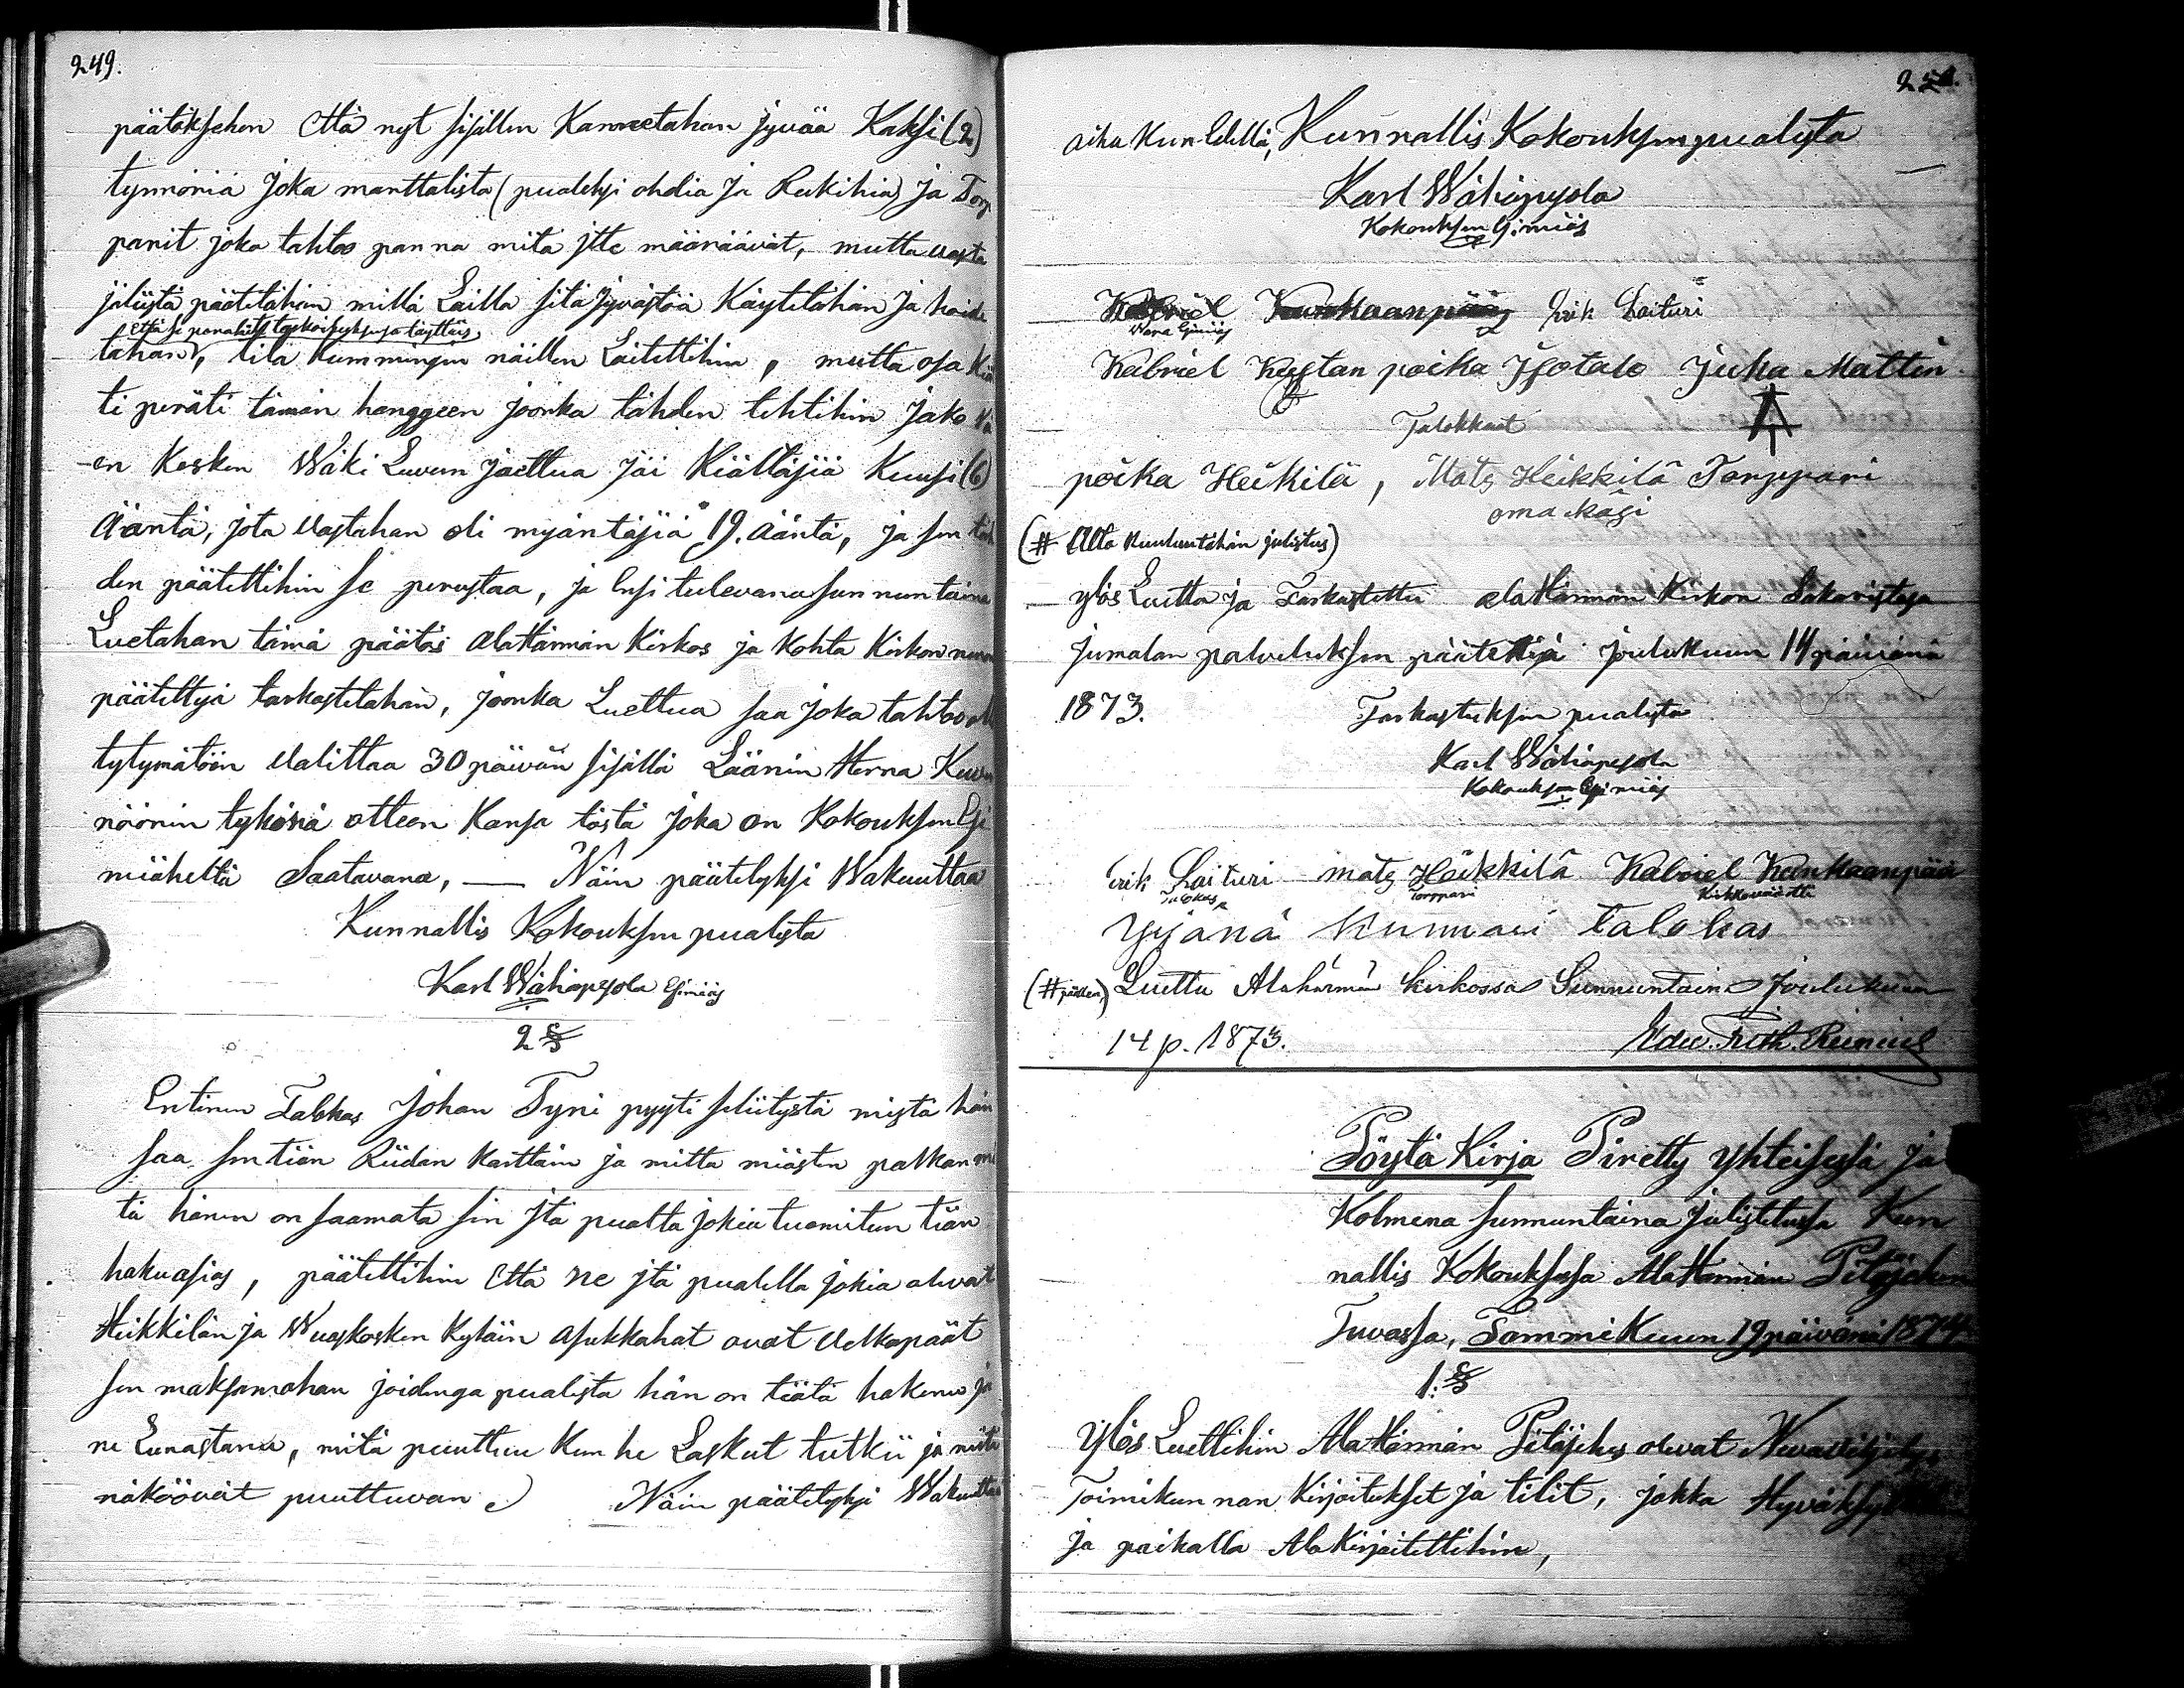 249.
päätöksehen Että nyt sisällen Kannetahan jyvää Kaksi (2)
tynnöriä Joka manttalista (pualeksi ohdia Ja Rukihia) Ja Torp
parit joka tahtoo panna mitä itte määräävät, mutta vasta
jälistä päätetähän millä Lailla sitä Jyvästöä Käytetähän Ja hoide
että se parahite tarkoituksensa täyttäis
tähän, tila kummingin näillen Laitettihin, mutta osa Kiäl
ti peräti tämän hanggeen joonka tähden tehtihin Jako Vä
en Kesken Wäki Luvun Jaettua Jäi Kiältäjiä Kuusi (6)
Ääntä, jota Vastahan oli myäntäjiä 19. ääntä, ja sen täh
den päätettihin se perustaa, ja Ensi tulevana sunnuntaina
Luetahan tämä päätös AlaHärmän Kirkos ja Kohta Kirkon menon
päätettyä tarkastetahan, joonka Luettua saa Joka tahtoo
tytymätöön Valittaa 30 päivän sisällä Läänin Herra Kuver
nöörin tykönä otteen Kansa tästä Joka on Kokouksen Esi
mieheltä Saatavana, — Näin päätetyksi Wakuuttaa
Kunnallis Kokouksen pualesta
Karl Wähäpesola Esimiäs
2 §
Entinen Talokas Johan Tyni pyyti selitystä mistä hän
saa sen tiän Riidan Karttain ja mitta miästen palkan mi
tä hänen on saamata sen Itä pualta jokia tuomitun tiän
haku asias, päätettihin Että ne Itä pualella jokia olevat
Heikkilän ja Wuoskosken Kyläin asukkahat ovat Velkapäät
sen maksamahan joidenga pualesta hän on tiätä hakenu ja
ne Lunastava, mitä puuttuu kun he Laskut tutkii ja niitä
näköövät puuttuvan Näin päätetyksi Wakuuttaa
aika Kun Edellä, Kunnallis Kokouksen pualesta
Karl Wähäpesola
Kokouksen Esimiäs
Kabriel Kankaanpää Erik Laituri
Kabriel Kustan poika Isotalo Juha Mattin
Talokkaat
poika Heikilä, Mats Heikkilä Torppari
oma käsi
(# Alla Kuuluu tähän julistus)
ylös Luettu ja Tarkastettu alaHärmän Kirkon Sakaristosa
Jumalan palveluksen päätettyä joulukuun 14 päivänä
1873. Tarkastuksen pualesta
Karl Wähäpesola
Kokouksen Esimiäs
Erik Laituri mats Heikkilä Kabriel Kankaanpää
Talokas Torppari Kirkkoväärtti
Yrjänä Kunnari talokas
(# päällen) Luettu Alahärmän kirkossa Sunnuntaina Joulukuun
14 p. 1873.
Pöytä Kirja Piretty Yhteisessä ja
Kolmena sunnuntaina Julistetussa Kun
nallis Kokouksesa AlaHärmän Pitäjähän
Tuvassa, Tammi Kuun 19 päivänä 1874
1. §
Ylös Luettihin AlaHärmän Pitäjehes olevat
Toimikunnan Kirjoitukset Ja tilit, jokka
ja paikalla Alakirjoitettihin,